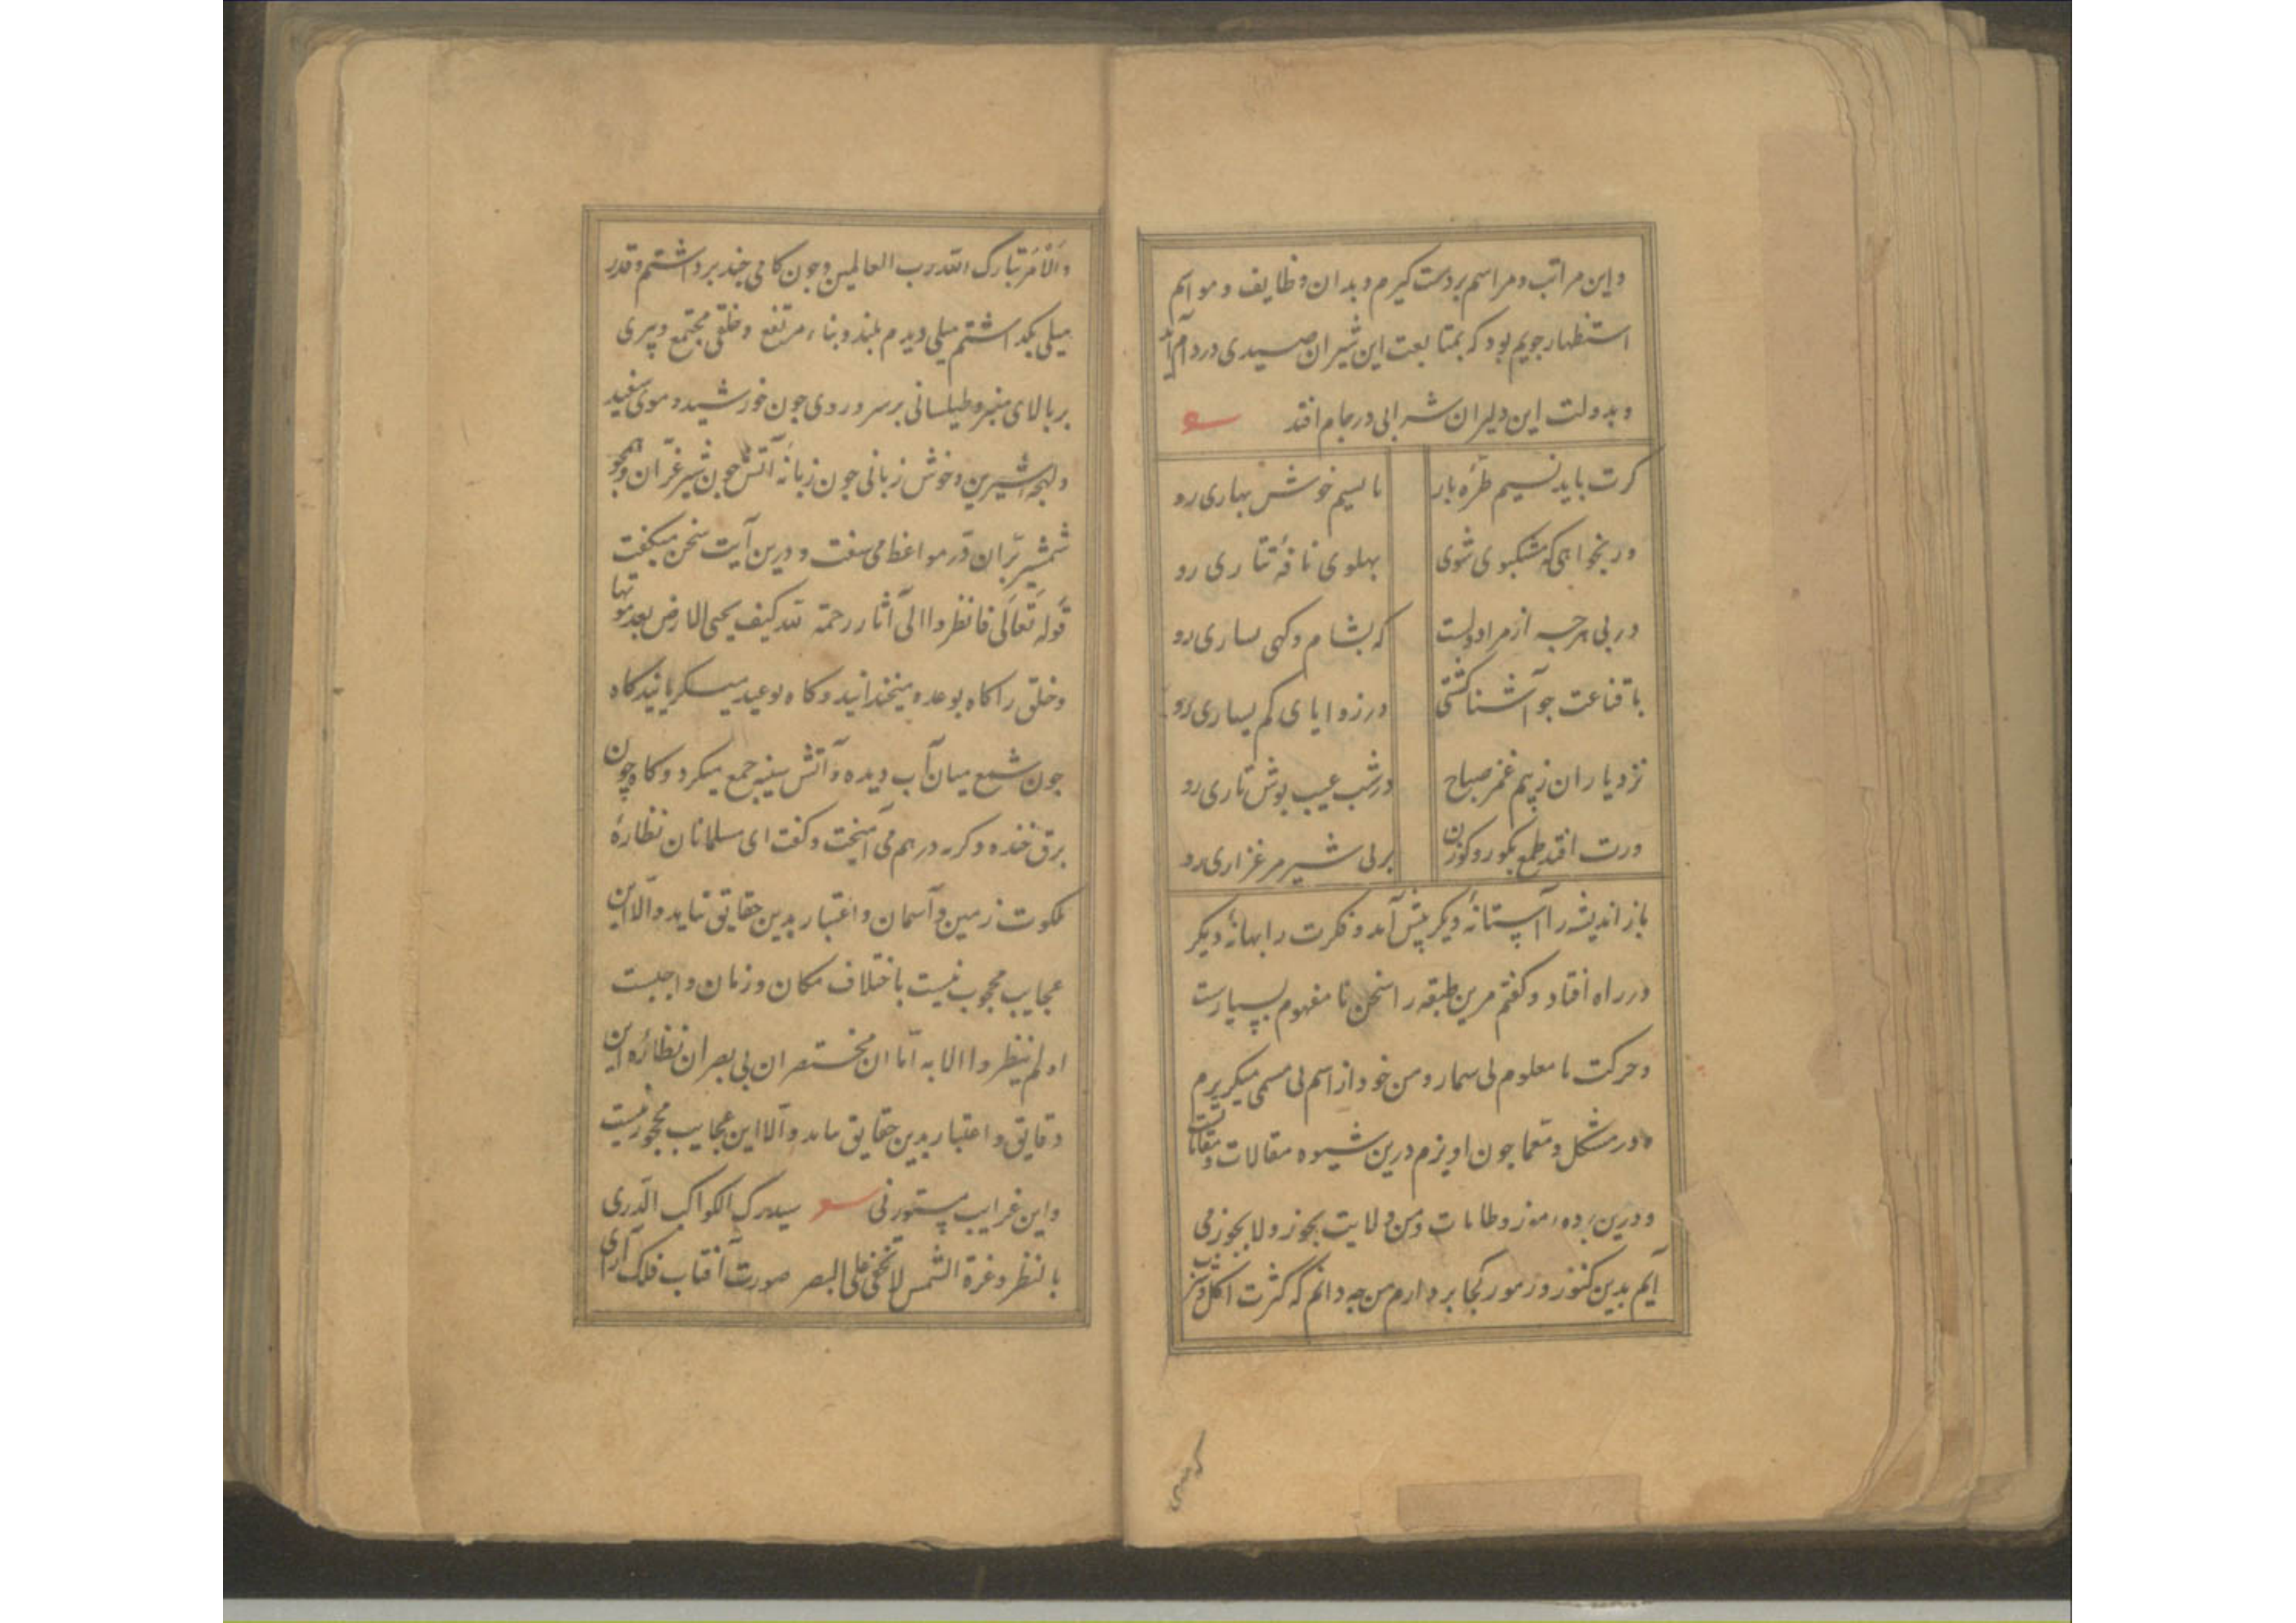 واین مراتب و مراسم بردست کیرم و بدان وظایف و مواسم
استظهار جویم بود که بمتابعت این شیران صیدی در دام آید
و بدولت این دلیران شرابی در جام افتد
کرت باید نسیم طرّه یار
با نسیم خوش بهاری رو
ور بخواهی که مشکبوی شوی
بهلوی نافه تتاری رو
در بی هرچه از مراد ولست
که بشام و کهی بساری رو
با قناعت جو آشنا کشتی
در زوایای کم یساری رو
نزد یاران ز بیم غمز صباح
در شب عیب بوش تاری رو
ورت افتد طمع بکور و کوزن
بر بی شیر مرغزاری رو
باز اندیشه را آستانهٔ دیکر پیش آمد و فکرت را بهانهٔ دیکر
در راه افتاد و کفتم مرین طبقه را سخن نا مفهوم بسیارست
و حرکت نا معلوم بی شمار و من خود از اسم بی مسمی میکریزم
در مشکل و معما جون اویزم درین شیوه مقالات و مقامات
و درین برده رموز و طامات و من ولایت یجوز و لا یجوز می
آیم بدین کنوز و رموز کجا بردارم من چه دانم که کثرت اکل و شرب
والامر تبارک الله رب العالمین و جون کامی جند برداشتم و قدر
میلی بکداشتم میلی دیدم بلند و بناء مرتفع و خلقی مجتمع و پیری
بر بالای منبر و طیلسانی بر سر و روی جون خورشید و موی سفید
و لهجهٔ شیرین و خوش زبانی جون زبانهٔ آتش جون شیر غرّان و همجو
شمشیر برّان درّ مواعظ می سفت و درین آیت سخن میکفت
قوله تعالی فانظروا الی آثار رحمة الله کیف یحیی الارض بعد موتها
و خلق را کاه بوعده میخندانید و کاه بوعید میکریانید کاه
جون شمع میان آب دیده و آتش سینه جمع میکرد و کاه چون
برق خنده و کریه در هم می آمیخت و کفت ای مسلمانان نظارهٔ
ملکوت زمین و آسمان و اعتبار بدین حقایق نباید والّا این
عجایب محجوب نیست باختلاف مکان و زمان واجبست
اولم ینظروا الابه امّا ان مختصران بی بصر ان نظارهٔ این
دقایق و اعتبار بدین حقایق نباید والّا این عجایب محجور نیست
و این غرایب مستور نی سیدرک الکواکب الدّری
بالنظر و غرة الشمس لا تخفی علی البصر صورت آفتاب فلک آرای